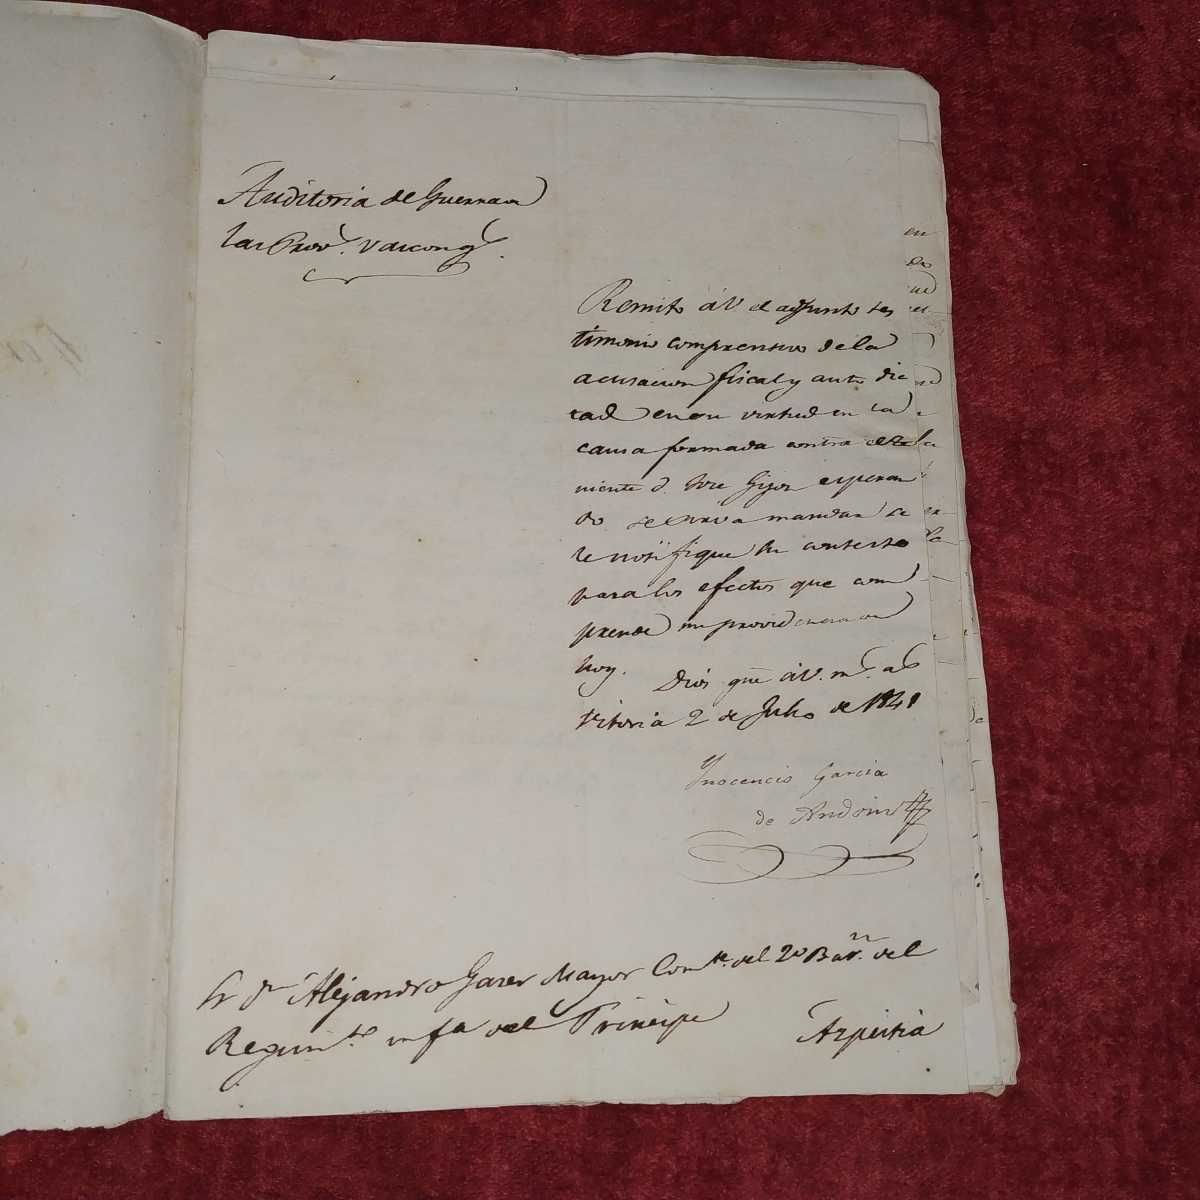 Auditoria de Guerra en
las Prov.s Vascong.s
Remito á V el adjunto tes
timonio comprensivo de la
acusacion fiscal y auto dic
tado en su virtud en la
causa formada contra el Te
niente D. Jose Gijon esperan
do se sirva mandar se
le notifique su contesto
para los efectos que com
prende mi providencia de
hoy. Dios gue á V. m.s a.s
Vitoria 2 de Julio de 1841
Ynocencio Garcia
de Andoin
Sr Dn Alejandro Mayor Com.te del 2º Bat.n del
Regim.to inf.a del Principe
Azpeitia